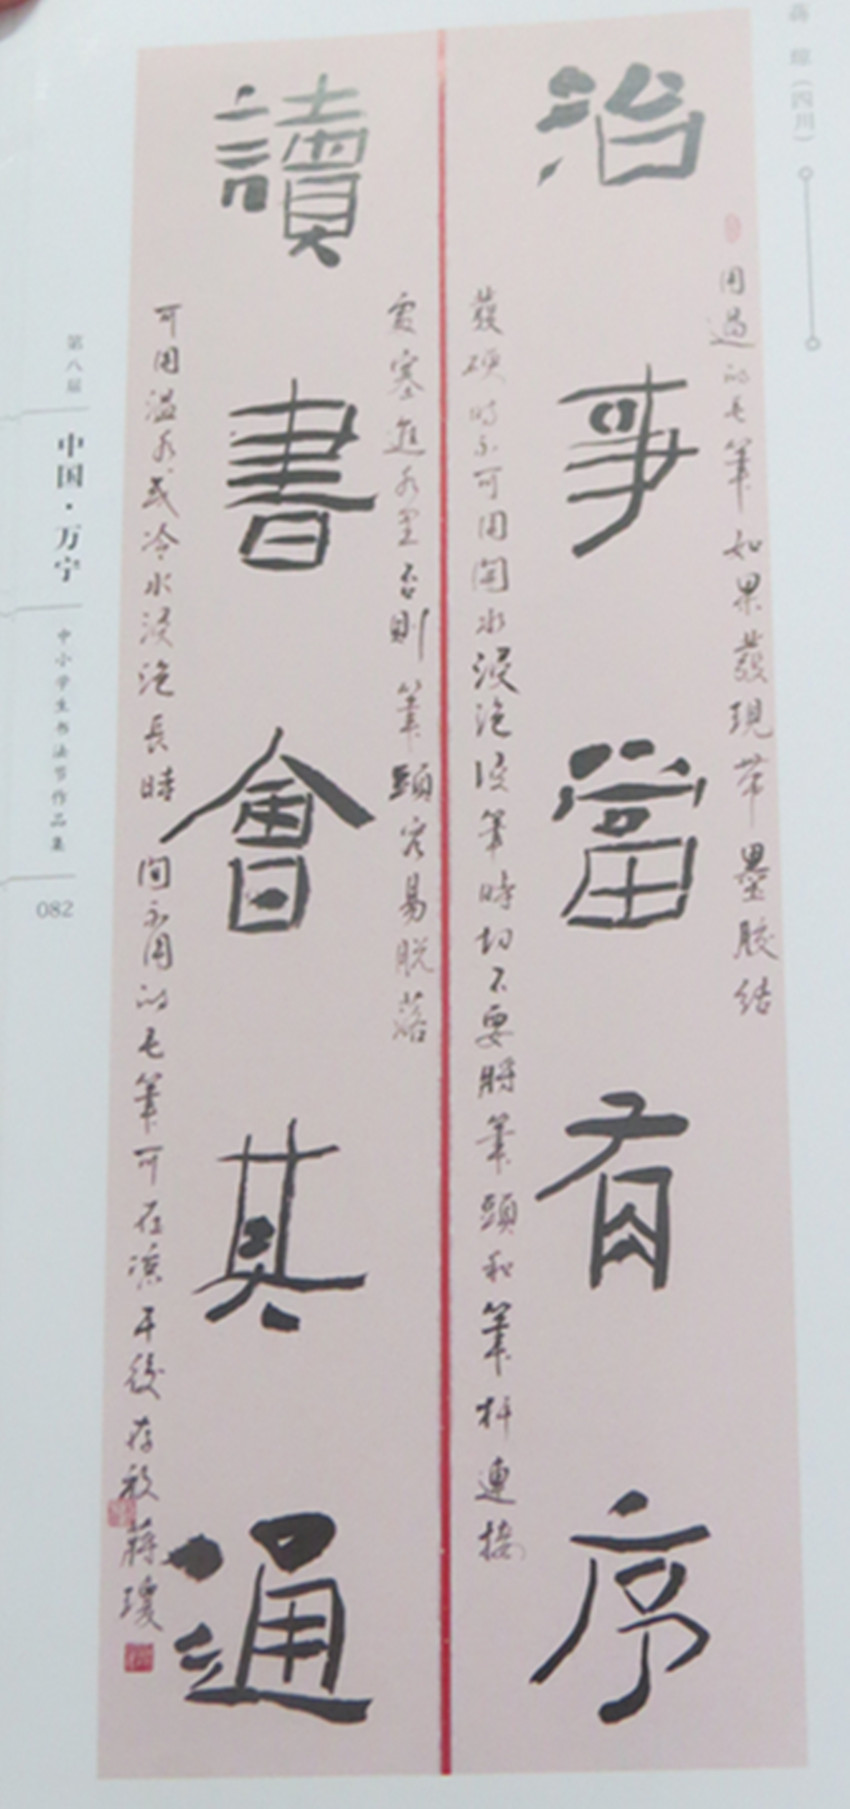 治事當有序
讀書會其通
用過的毛筆如果發現帶墨膠結
發硬時不可用開水浸泡浸筆時切不要將筆頭和筆杆連接
處塞進水里否則筆頭容易脫落
可用溫水或冷水浸泡長時間不用的毛筆可在涼干後存放蔣瓊
蒋琼（四川）
第八届
中国·万宁
中小学生书法节作品集
082